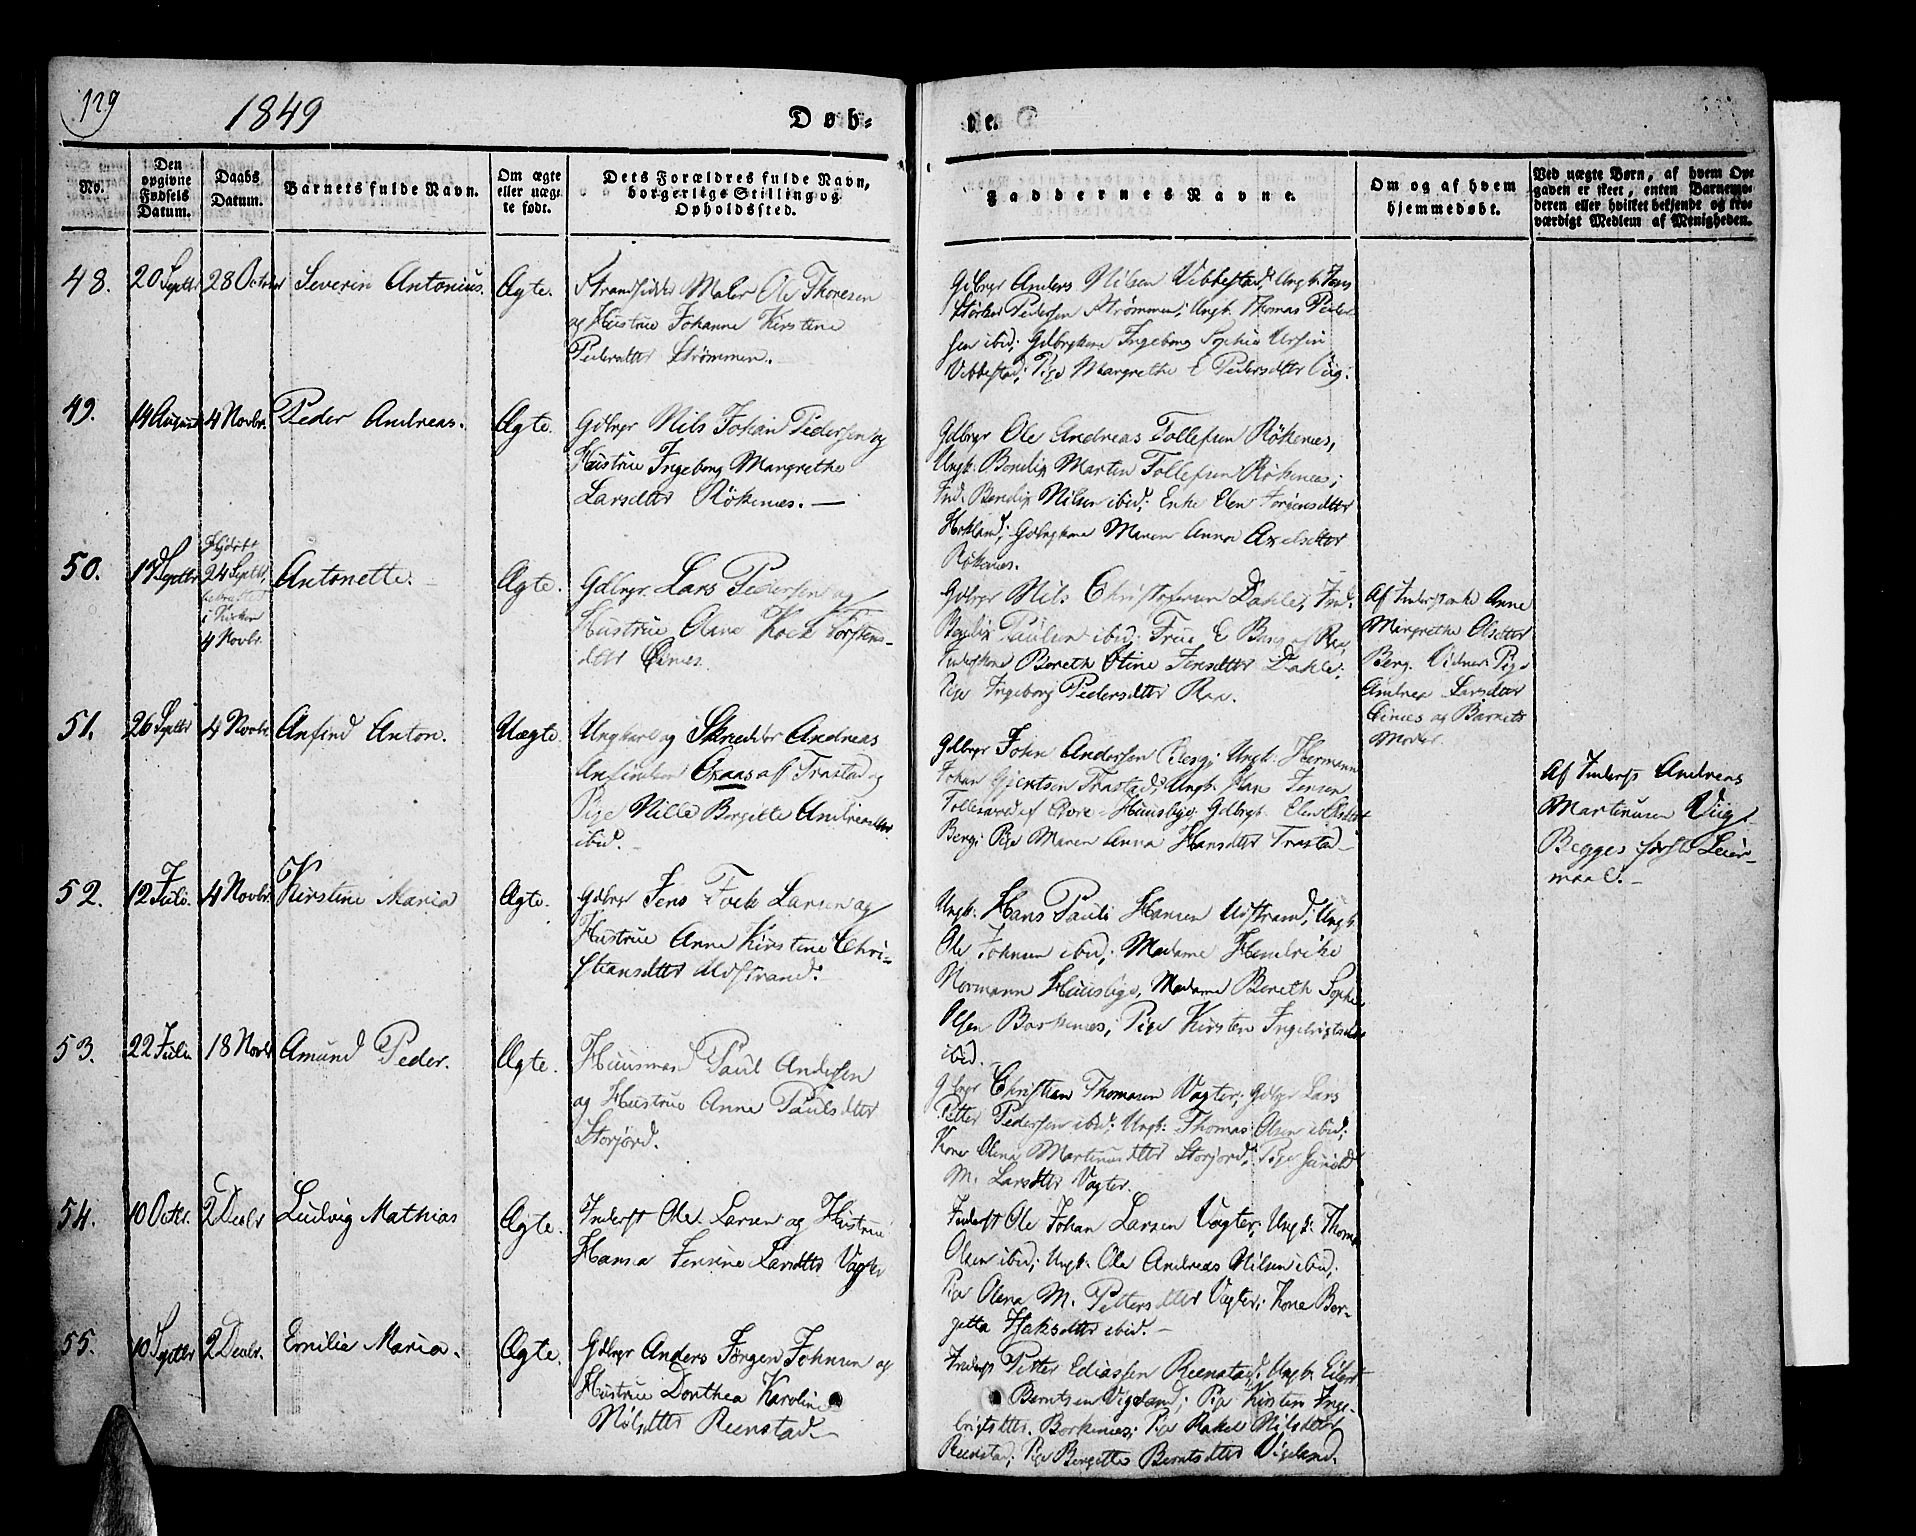 129
1849
Døb-
te.
No.
Den
opgivne
Fødsels
Datum.
Daabs
Datum.
Barnets fulde Navn.
Om ægte
eller uæg-
te født.
Dets Forældres fulde Navn,
borgerlige Stilling og
Opholdssted.
Faddernes Navne.
Om og af hvem
hjemmedøbt.
Ved uægte Børn, af hvem Op-
gaven er skeet, enten Barnemo-
deren eller hvilket bekjendte og tro-
værdigt Medlem af Menigheden.
48.
20 Septbr
28 October
Severin Antonius.
Ægte.
Strandsidder Maler Ole Thoresen
og Hustrue Johanne Kirstine
Pedersdtter Strømmen.
Gdbrgr Anders Nilsen Vibbestad; Ungk. Jens
Pedersen Strømmen; Ungk. Thomas Peder-
sen ibid; Gdbrgkone Ingeborg Sophia
Vibbestad; Pige Margrethe E Pedersdtter
49.
14 August
4 Novbr.
Peder Andreas.
Ægte.
Gdbrgr Nils Johan Pedersen og
Hustrue Ingeborg Margrethe
Larsdtter Rökenes. —
Gdbrgr Ole Andreas Tollefsen Rökenes,
Ungk. Bendix Martin Tollefsen Rökenes;
Ind. Bendix Nilsen ibid; Enke Elen
Hokland; Gdbrgkone Maren Anna Axelsdtter
Rökenes.
50.
17 Septbr
Hjdøbt
24 Septbr,
i Kirken
4 Novbr.
Antonette.
Ægte.
Gdbrgr. Lars Pedersen og
Hustrue Olave Kock Torstens-
dtter
Gdbrgr Nils Christofersen Dahle; Ind.
Bendix Paulsen ibid; Frue E Bang af
Inderstkone Bereth Stine Jensdtter Dahle;
Pige Ingeborg Pedersdtter
Af Inderstenke Anne
Margrethe Olsdtter
Berg. Vidner: Pige
Andrea Larsdtter
og Barnets
Moder.
51.
26 Septbr
4 Novbr.
Anfind Anton.
Uægte.
Ungkarl og Skredder Andreas
Anfindsen af Trastad og
Pige Nille Bergitte Andreasdtter
ibid. —
Gdbrgr John Andersen Berg; Ungk. Hermann
Johan Gjertsen Trastad; Ungk. Jensen
Huusbye, Gdbrgk. Elen Olsdtter
Berg; Pige Maren Anna Hansdtter Trastad —
Af Inderst Andreas
Martinusen Viig.
Begges første Leier-
maal. —
52.
12 Juli.
4 Novbr.
Kirstine Maria
Ægte.
Gdbrgr Jens Fock Larsen og
Hustrue Anne Kirstine Chri-
stiansdtter
Ungk: Hans Pauli Hansen Ungk.
Ole Johnsen ibid; Madame Hendrike
Normann Huusbye, Madame Bereth Sophie
Olsen Borkenes; Pige Kirsten
ibid.
53.
22 Juli
18 Novbr
Amund Peder.
Ægte.
Huusmand Paul Andersen
og Hustrue Anne Paulsdtter
Storjord.
Gdbrgr Christian Thomasen Vagter; Gdbrgr Lars
Petter Pedersen ibid; Ungk: Thomas Olsen ibid;
Kone Olena Martinusdtter Storjord; Pige
M. Larsdtter Vagter.
54.
10 Octbr.
2 Decbr
Ludvig Mathias
Ægte.
Inderst Ole Larsen og Hustrue
Hansa Jensine Larsdtter Vagter
Inderst Ole Johan Larsen Vagter; Ungk: Thomas
Olsen ibid; Ungk: Ole Andreas Nilsen ibid;
Pige Olena M. Pettersdtter Vagter; Kone Ber-
getta ibid. —
55.
10 Septbr
2 Decbr.
Emilie Maria.
Ægte.
Gdbrgr Anders Jørgen Johnsen og
Hustrue Dorthea Karoline
Nilsdtter Reenstad —
Inderst Petter Ediassen Reenstad; Ungk. Eilert
Berntsen Vigeland; Pige Kirsten Inge-
brigtsdtter Borkenes; Pige Rakel Nilsdtter
Reenstad; Pige Bergitte Berntsdtter Vigeland.